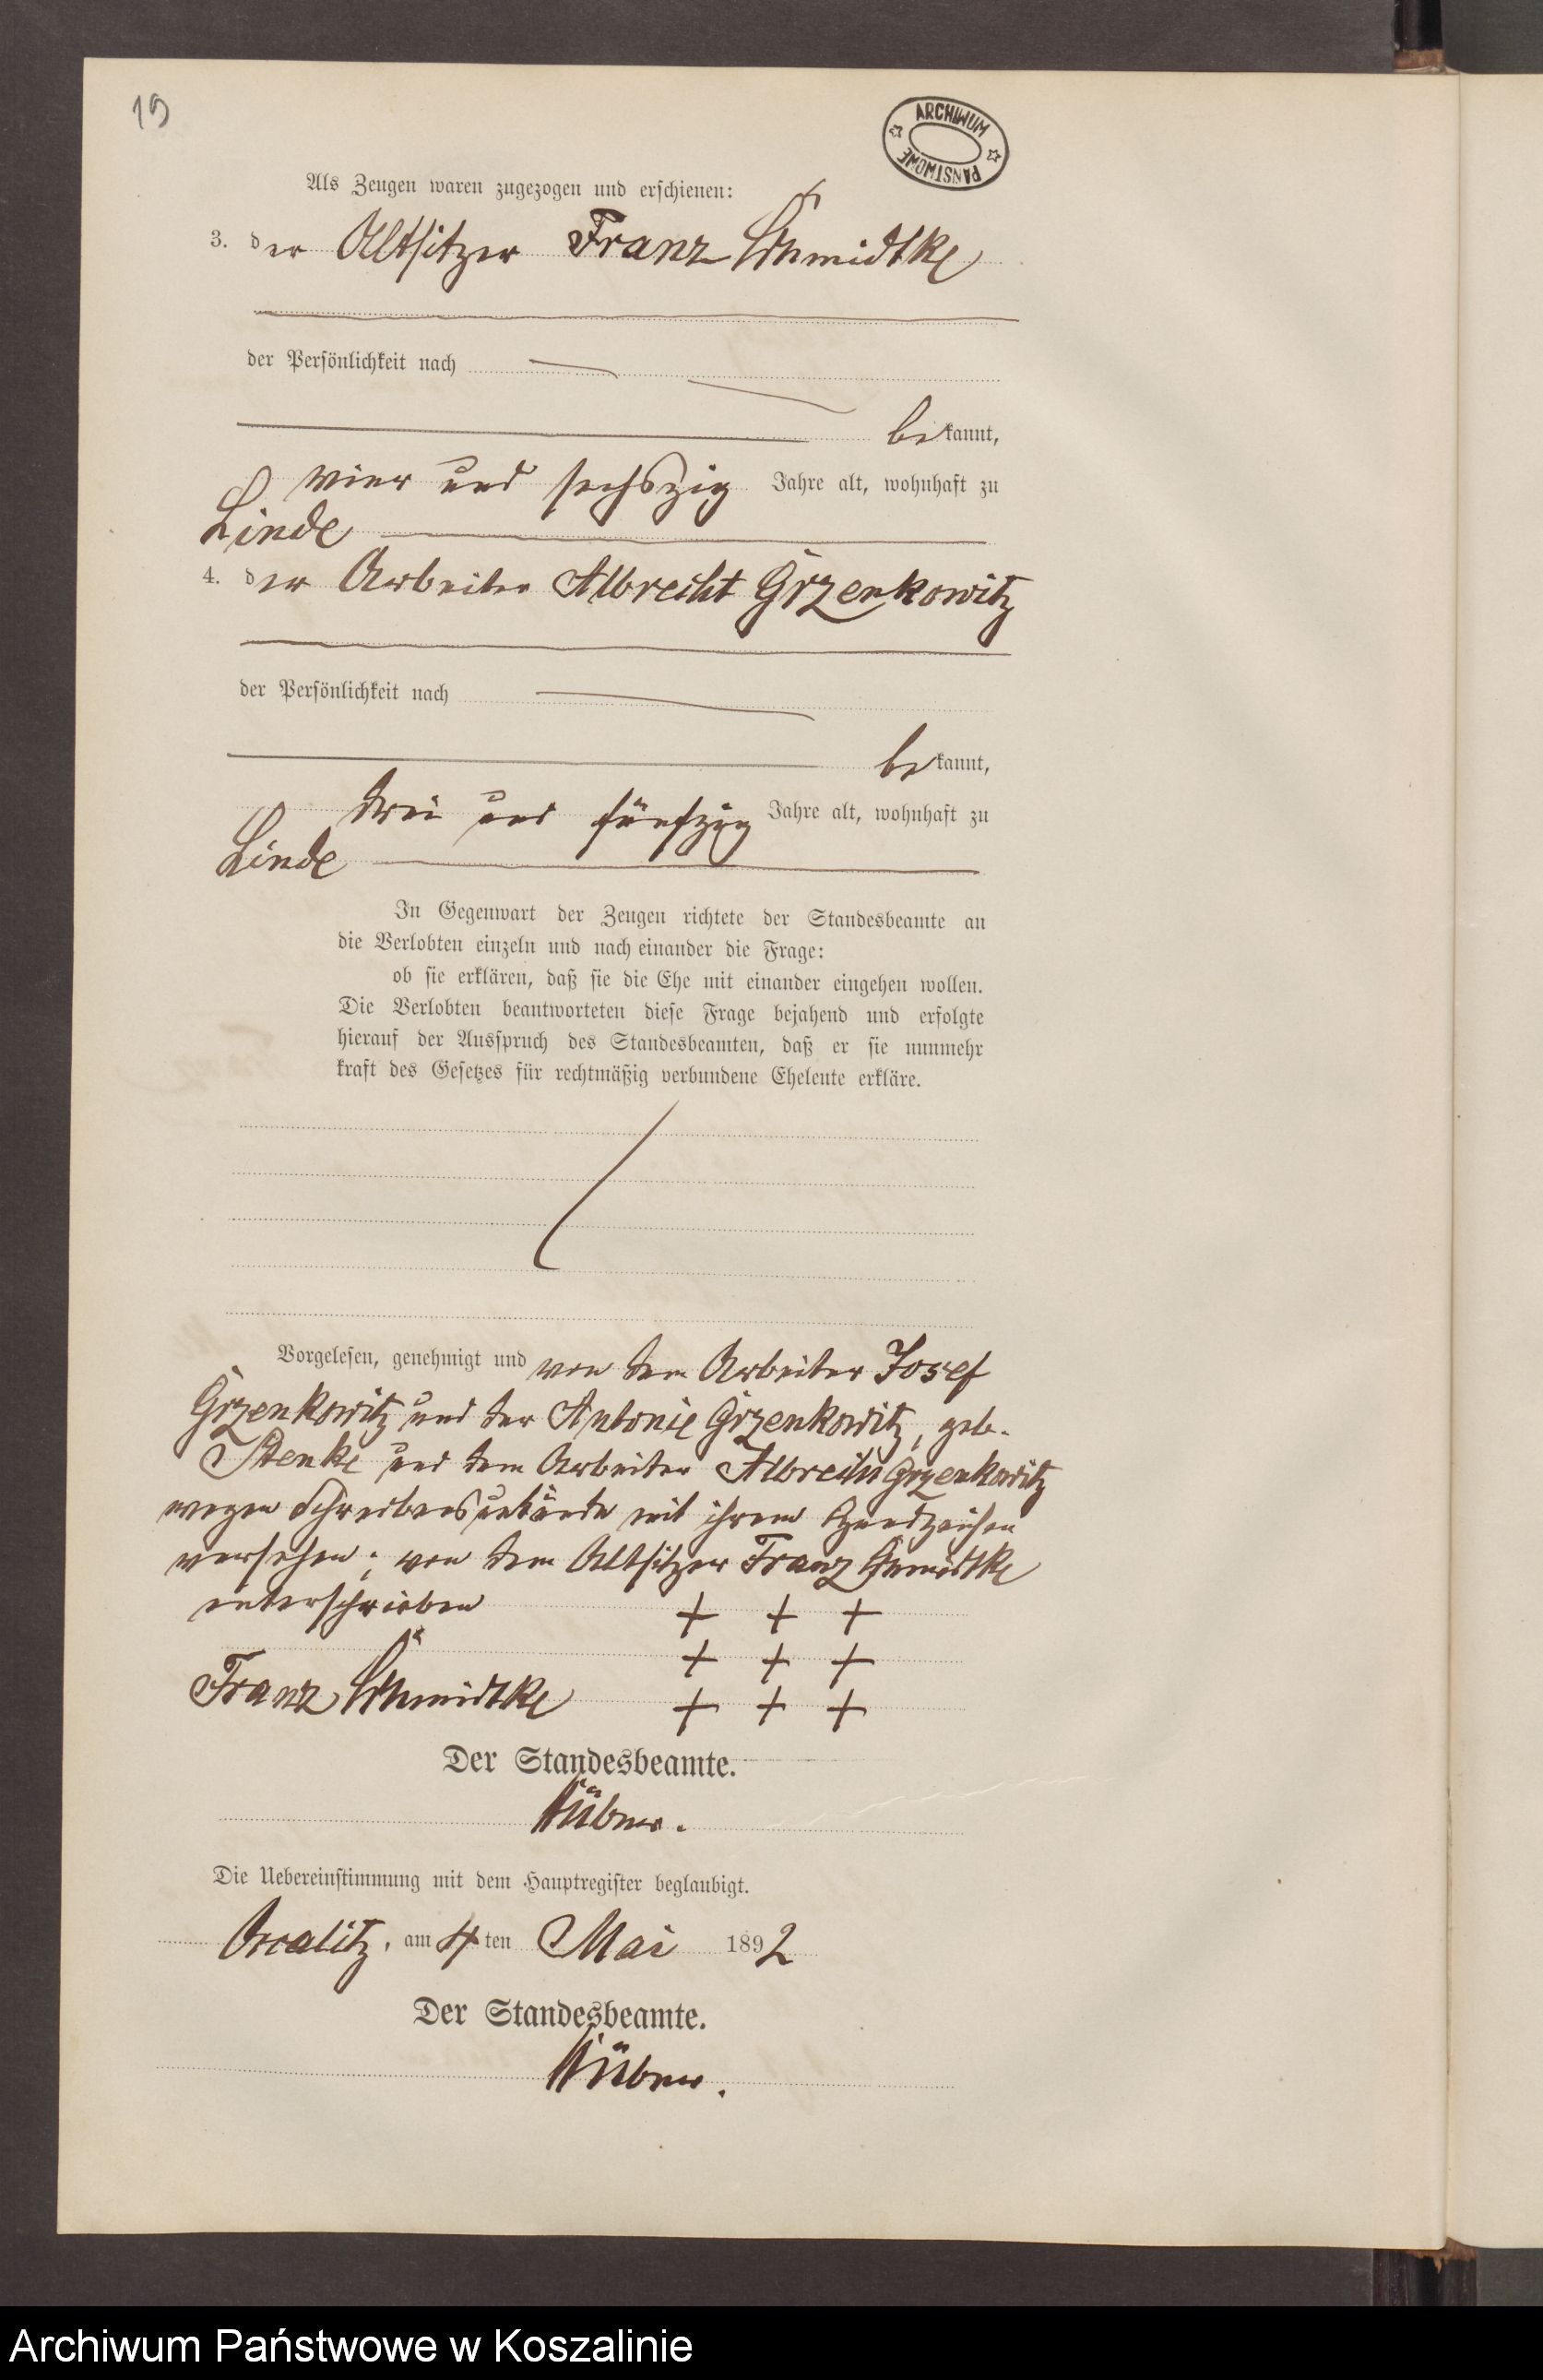 19
ARCHIWUM
PAŃSTWOWE
Als Zeugen waren zugezogen und erschienen:
3. der Altsitzer Franz Schmidtke
der Persönlichkeit nach
bekannt,
vier und sechszig Jahre alt, wohnhaft zu
Linde
4. der Arbeiter Albrecht Grzenkowitz
der Persönlichkeit nach
bekannt,
drei und fünfzig Jahre alt, wohnhaft zu
Linde
In Gegenwart der Zeugen richtete der Standesbeamte an
die Verlobten einzeln und nach einander die Frage:
ob sie erklären, daß sie die Ehe mit einander eingehen wollen.
Die Verlobten beantworteten diese Frage bejahend und erfolgte
hierauf der Ausspruch des Standesbeamten, daß er sie nunmehr
kraft des Gesetzes für rechtmäßig verbundene Eheleute erkläre.
Vorgelesen, genehmigt und von dem Arbeiter Josef
Grzenkowitz und der Antonie Grzenkowitz, geb.
und dem Arbeiter Albrecht Grzenkowitz
wegen Schreibensunkunde mit ihrem Handzeichen
versehen; von dem Altsitzer Franz Schmidtke
unterschrieben + + +
+ + +
Franz Schmidtke + + +
Der Standesbeamte.
Hübner.
Die Uebereinstimmung mit dem Hauptregister beglaubigt.
am 4ten Mai 1892
Der Standesbeamte.
Hübner.
Archiwum Państwowe w Koszalinie